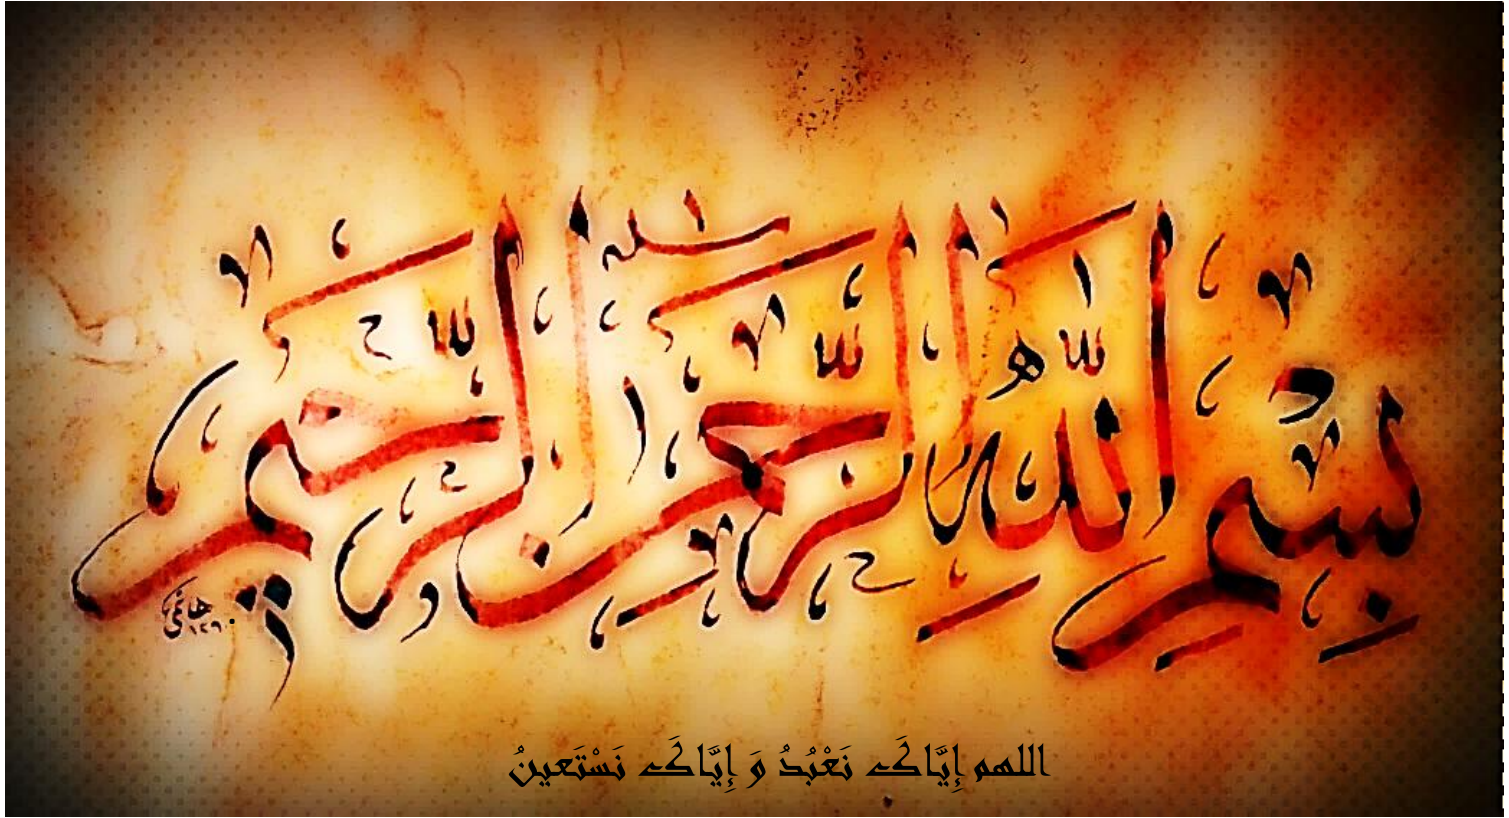 بِسْمِ اللّٰهِ الرَّحْمٰنِ الرَّحِيمِ
اللهم إِيَّاكَ نَعْبُدُ وَ إِيَّاكَ نَسْتَعينُ